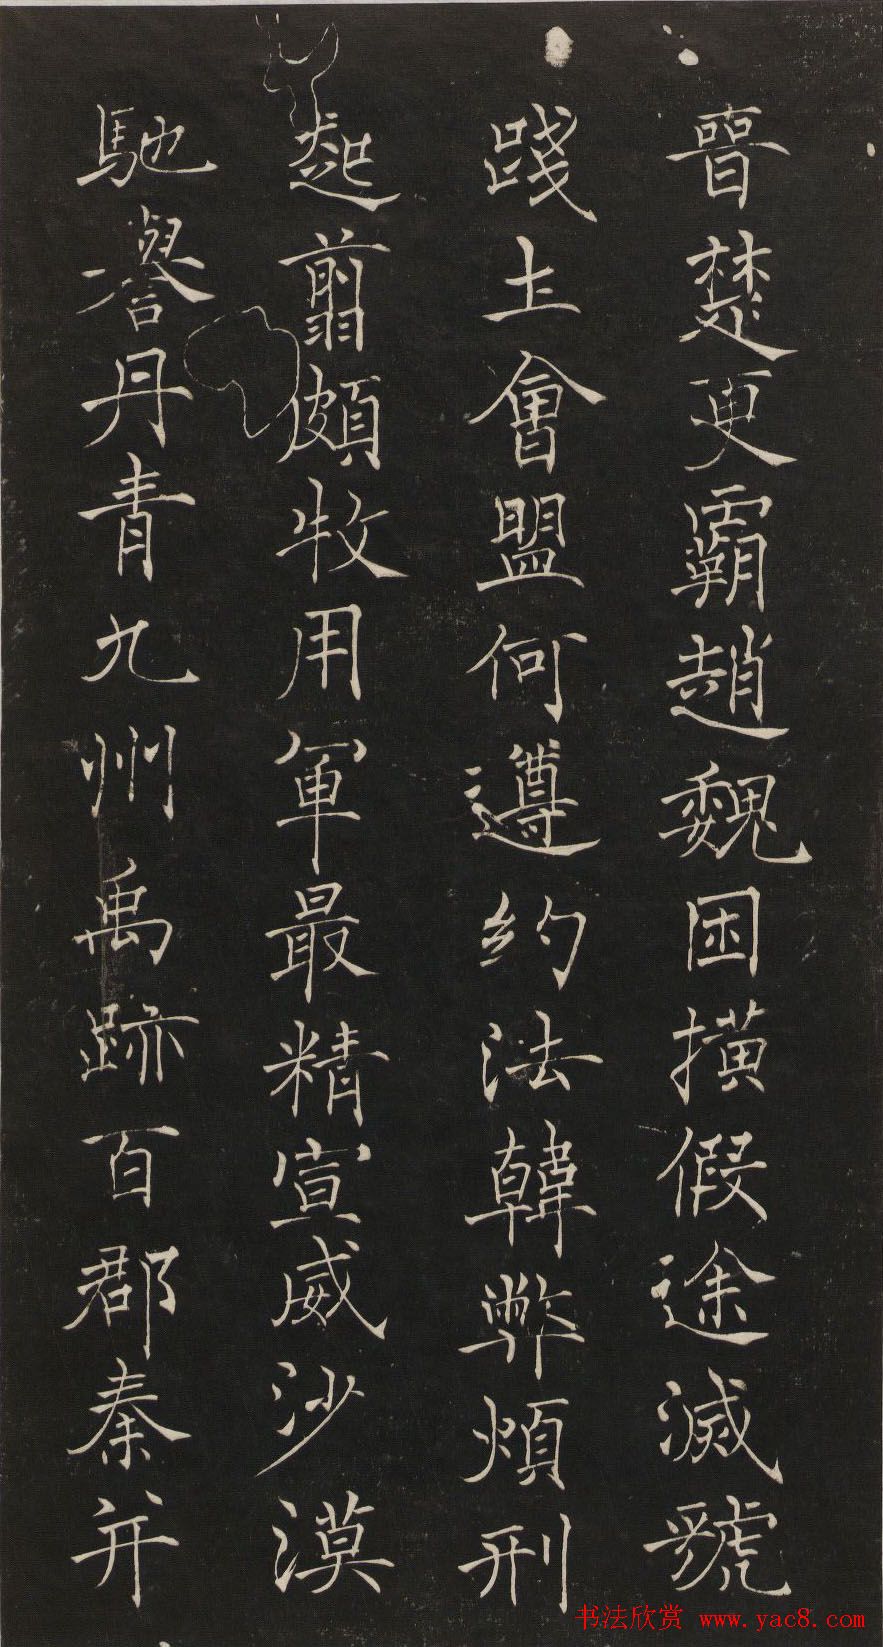 晉楚更霸趙魏困橫假途滅虢
踐土會盟何遵約法韓弊煩刑
起翦頗牧用軍最精宣威沙漠
馳譽丹青九州禹跡百郡秦并
书法欣赏 www.yac8.com